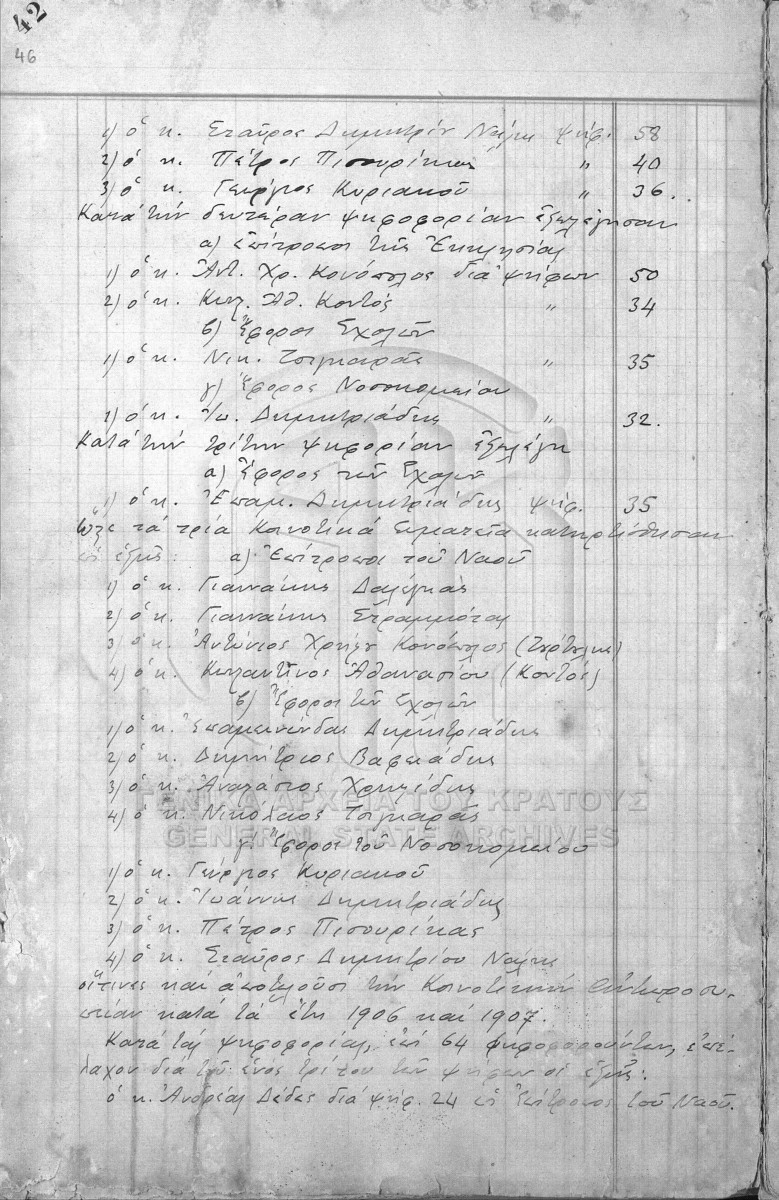 42
46
1) ὁ κ. Σταῦρος Δημητρίου Νάζης ψήφ. 58
2) ὁ κ. Πέτρος Πισουρίκας " 40
3) ὁ κ. Γεώργιος Κυριακοῦ " 36.
Κατὰ τὴν δευτέραν ψηφοφορίαν ἐξελέγησαν
α) ἐπίτροποι τῆς Ἐκκλησίας
1) ὁ κ. Ἀντ. Χρ. Κονόπολος διὰ ψήφων 50
2) ὁ κ. Κων. Ἀθ. Κοντός " 34
β) Ἔφοροι Σχολῶν
1) ὁ κ. Νικ. Τσιγκαρᾶς " 35
γ) Ἔφορος Νοσοκομείου
1) ὁ κ. Ἰω. Δημητριάδης " 32.
Κατὰ τὴν τρίτην ψηφορίαν ἐξελέγη
α) Ἔφορος τῶν Σχολῶν
1) ὁ κ. Ἐπαμ. Δημητριάδης ψήφ. 35
Ὥστε τὰ τρία Κοινοτικὰ Σωματεῖα κατηρτίσθησαν
ὡς ἑξῆς: α) Ἐπίτροποι τοῦ Ναοῦ
1) ὁ κ. Γιαννάκης Δαλέγκας
2) ὁ κ. Γιαννάκης Στραμμιότας
3) ὁ κ. Ἀντώνιος Χρήστου Κονόπολος
4) ὁ κ. Κωνσταντῖνος Ἀθανασίου (Κοντός)
β) Ἔφοροι τῶν Σχολῶν
1) ὁ κ. Ἐπαμεινώνδας Δημητριάδης
2) ὁ κ. Δημήτριος Βαφειάδης
3) ὁ κ. Ἀναστάσιος Χρηστίδης
4) ὁ κ. Νικόλαος Τσιγκαρᾶς
ΓΕΝΙΚΑ ΑΡΧΕΙΑ ΤΟΥ ΚΡΑΤΟΥΣ
GENERAL STATE ARCHIVES
γ) Ἔφοροι τοῦ Νοσοκομείου
1) ὁ κ. Γεώργιος Κυριακοῦ
2) ὁ κ. Ἰωάννης Δημητριάδης
3) ὁ κ. Πέτρος Πισουρίκας
4) ὁ κ. Σταῦρος Δημητρίου Νάζης
οἵτινες καὶ ἀποτελοῦσι τὴν Κοινοτικὴν Ἀντιπροσω-
πείαν κατὰ τὰ ἔτη 1906 καὶ 1907.
Κατὰ τὰς ψηφοφορίας, ἐπὶ 64 ψηφοφορούντων, ἐπέ-
λαχον διὰ τοῦ ἑνὸς τρίτου τῶν ψήφων οἱ ἑξῆς:
ὁ κ. Ἀνδρέας Δέδες διὰ ψήφ. 24 ὡς Ἐπίτροπος τοῦ Ναοῦ.